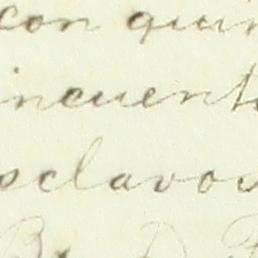 con quin
incuent
sclavos